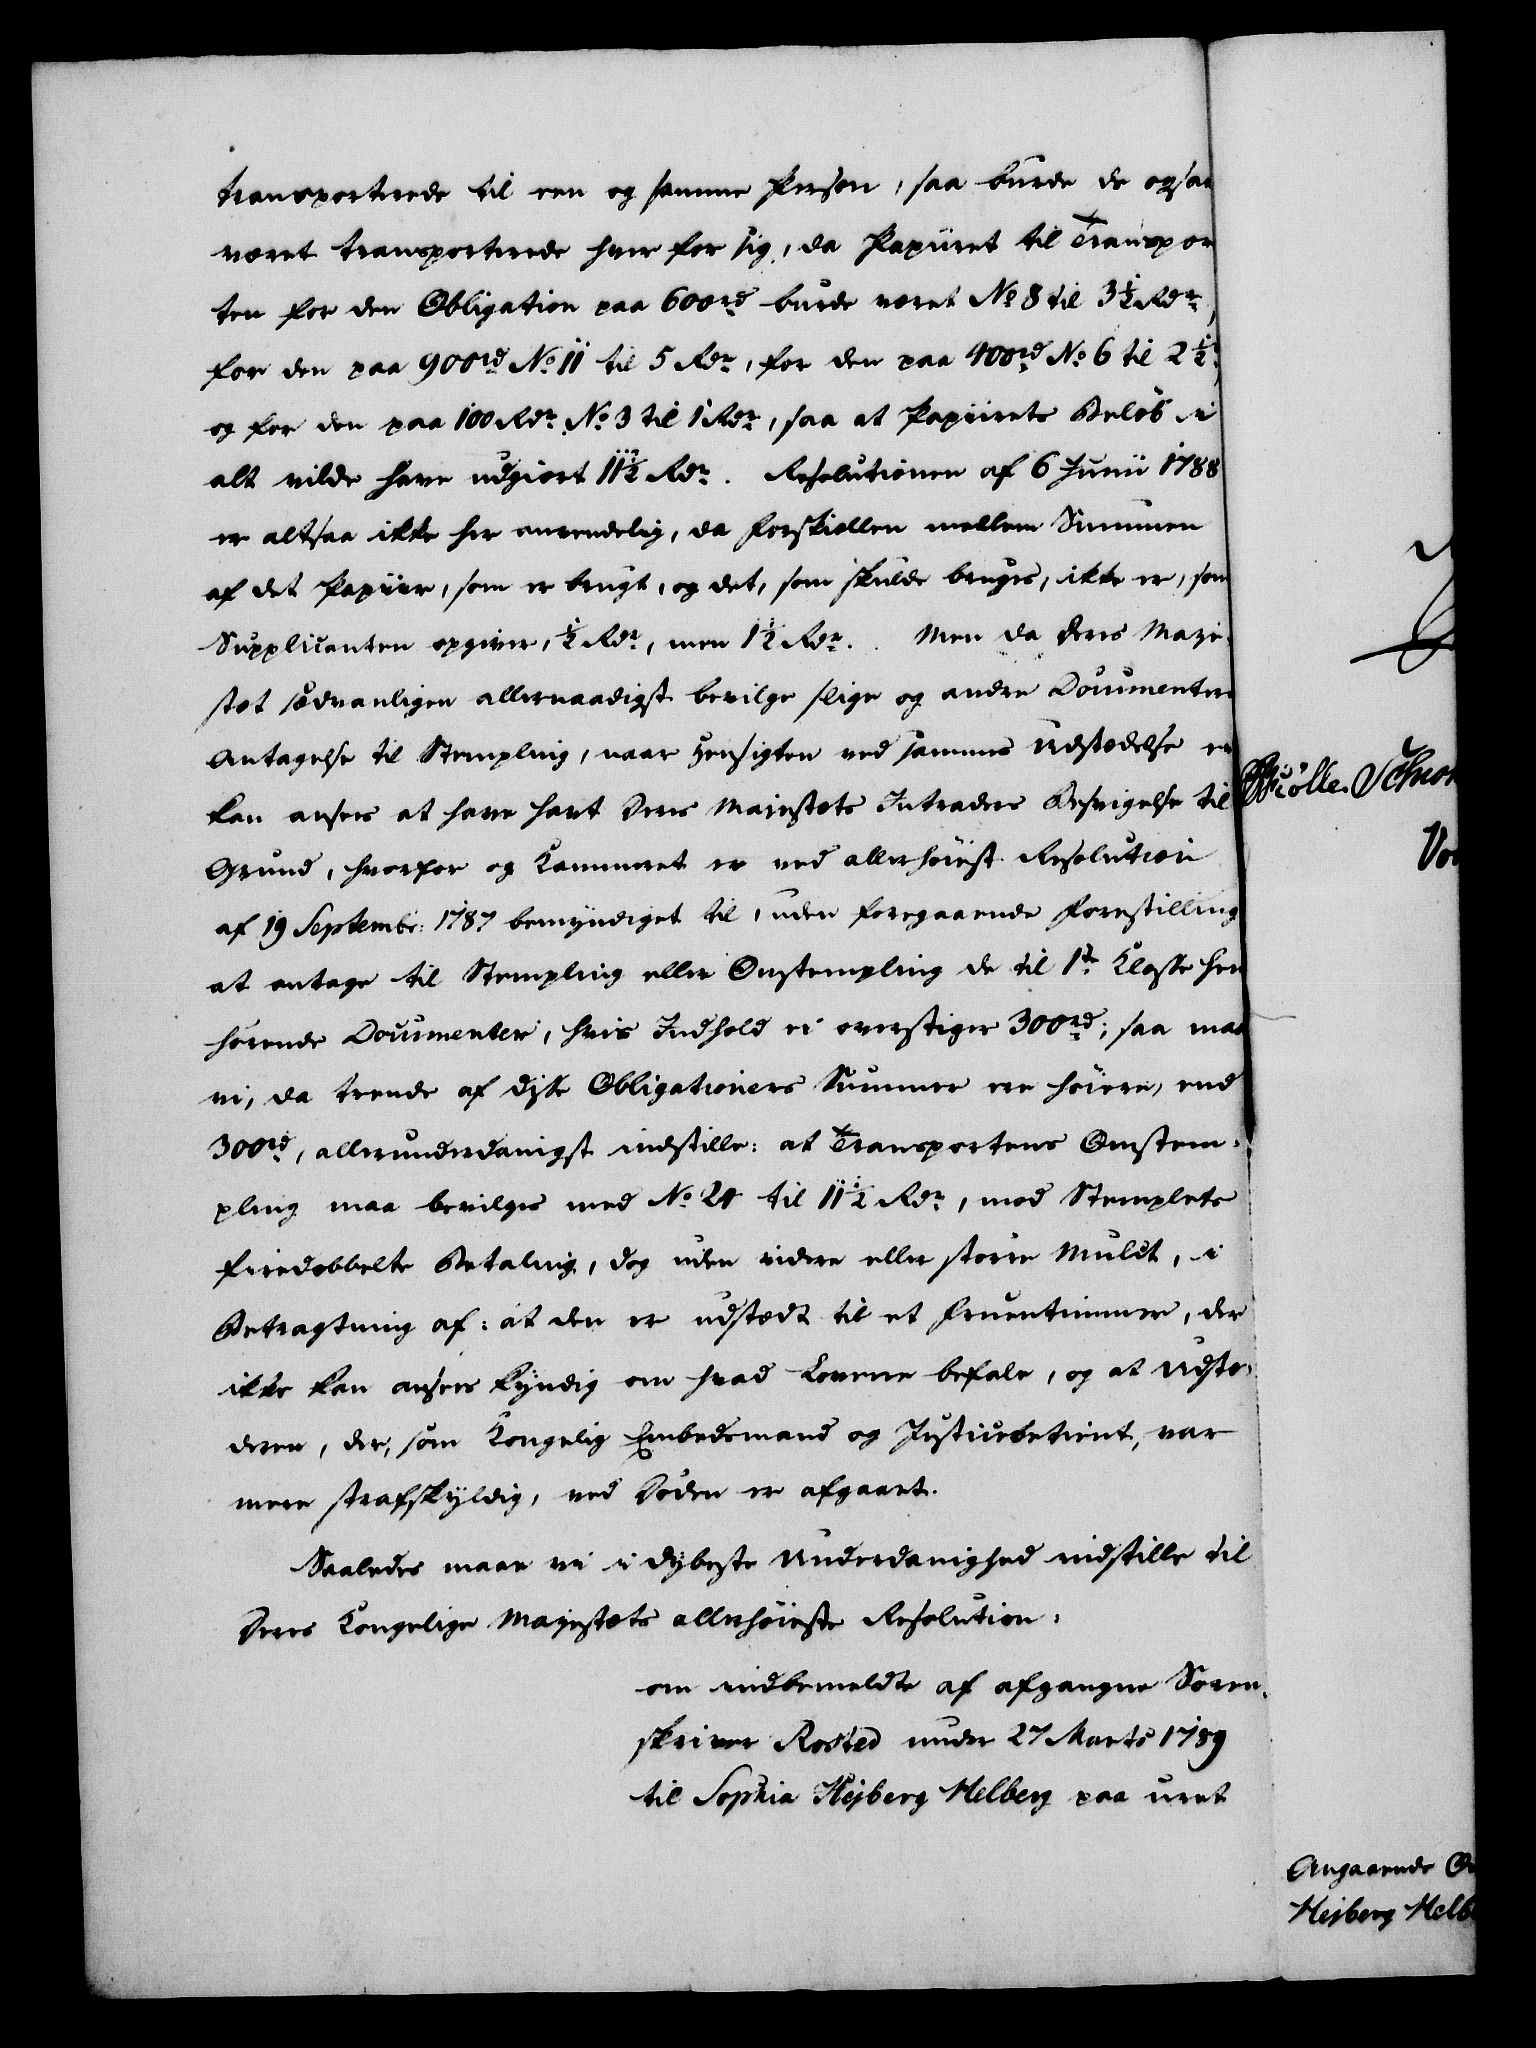 transporterede til een og samme Person, saa burde de ogsaa
været transporterede hver for sig, da Papiiret til Transpor
ten for den Obligation paa 600rd burde været No 8 til 3½ Rdr,
for den paa 900rd No 11 til 5 Rdr, for den paa 400rd No 6 til 2½
og for den paa 100 Rdr No 3 til 1 Rdr, saa at Papiirets Beløb i
alt vilde have udgiort 11½ Rdr. Resolutionen af 6 Junii 1788
er altsaa ikke her anvendelig, da Forskiællen mellem Summen
af det Papiir, som er brugt, og det, som skulde bruges, ikke er, som
Supplicanten opgiver, ½ Rdr, men 1½ Rdr. Men da Deres Maje-
stæt sædvanligen allernaadigst bevilge slige og andre Documenters
Antagelse til Stempling, naar Hensigten ved sammes Udstædelse ei
kan ansees at have havt Deres Majestæts Intraders Besvigelse til
Grund, hvorfor og Kammeret er ved allerhøiest Resolution
af 19 Septembr: 1787 bemyndiget til, uden foregaaende Forestilling
at antage til Stempling eller Omstempling de til 1te Klasse hen
hørende Documenter, hvis Indhold ei overstiger 300rd; saa maae
vi, da trende af disse Obligationers Summer ere høiere, end
300rd, allerunderdanigst indstille: at Transportens Omstem-
pling maa bevilges med No 24 til 11½ Rdr, mod Stemplets
fiiredobbelte Betaling, dog uden videre eller større Mulct, i
Betragtning af: at den er udstædt til et Fruentimmer, der
ikke kan ansees kyndig om hvad Lovene befale, og at Udstæ-
deren, der, som Kongelig Embedsmand og Justicebetient, var
mere strafskyldig, ved Døden er afgaaet.
Saaledes maae vi i dybeste Underdanighed indstille til
Deres Kongelige Majestæts allerhøieste Resolution:
om indbemeldte af afgangne Soren-
skriver Rosted under 27 Marts 1789
til Sophia Hejberg Melberg paa uret
Angaaende
Hejberg Melb